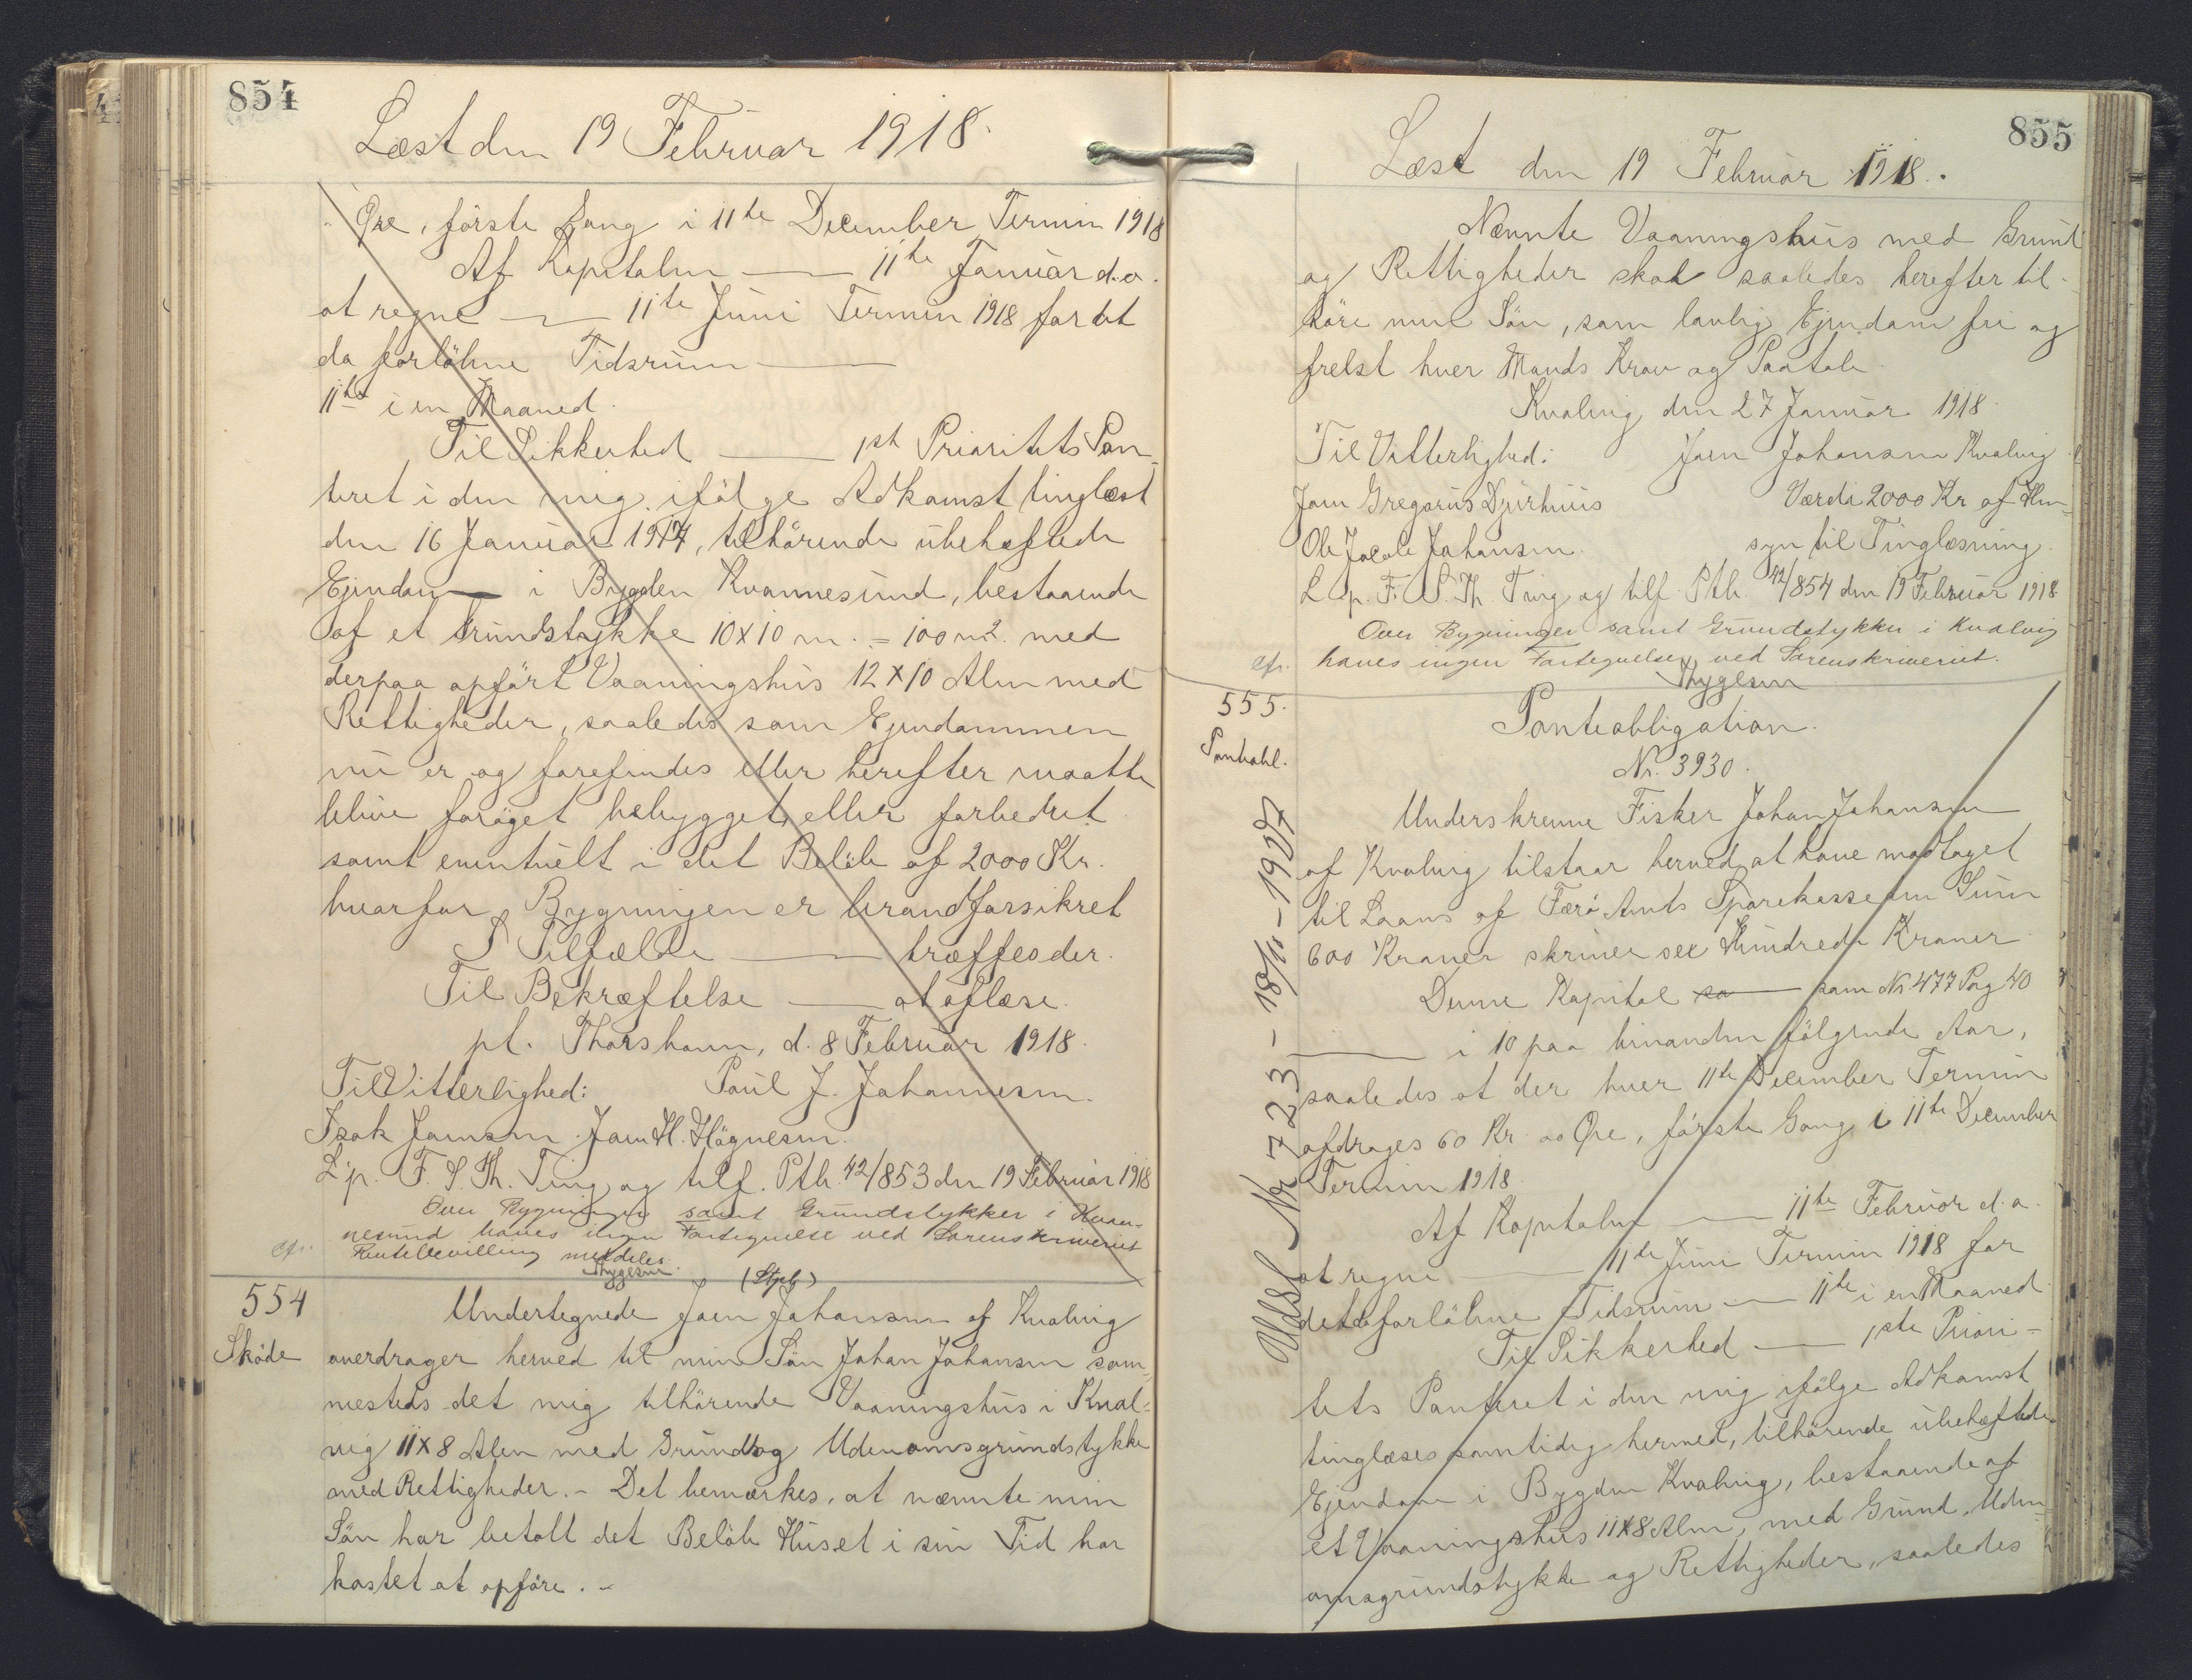 854
Læst den 19 Februar 1918.
Øre, förste Gang i 11te December Termin 1918
Af Kapitalen — 11te Januar d.a.
at regne — 11te Juni Termin 1918 for det
da forlöbne Tidsrum —
11te i en Maaned.
Til Sikkerhed — 1ste Prioritets Pan-
teret i den mig ifölge Adkomst tinglæst
den 16 Januar 1917, tilhörende ubehæftede
Ejendom — i Bygden Kvannesund, bestaaende
af et Grundstykke 10 x 10 m. = 100 m². med
derpaa opfört Vaaningshus 12 x 10 Alen med
Rettigheder, saaledes som Ejendommen
nu er og forefindes eller herefter maatte
blive foröget bebygget, eller forbedret
samt eventuelt i det Belöb af 2000 Kr.
hvorfor Bygningen er brandforsikret
I Tilfælde — træffes der.
Til Bekræftelse — at aflæse.
pt. Thorshavn, d. 8 Februar 1918.
Til Vitterlighed: Poul J. Johannesen.
Isak Joensen. Joen H. Högnesen.
L. p. F. S. Th. Ting og tilf. Ptb. 42/853 den 19 Februar 1918
Over Bygninger samt Grundstykker i Kvan-
nesund haves ingen Fortegnelse ved Sorenskriveriet
cfr. Rentebevilling meddeles.
Thygesen
(Stpl.)
554
Sköde
Undertegnede Joen Johansen af Kvalvig
overdrager herved til min Sön Johan Johansen sam-
mesteds det mig tilhörende Vaaningshus i Kval-
vig 11 x 8 Alen med Grund og Udenomsgrundstykke
med Rettigheder. - Det bemærkes, at nævnte min
Sön har betalt det Belöb Huset i sin Tid har
kostet at opföre. -
855
Læst den 19 Februar 1918.
Nævnte Vaaningshus med Grund
og Rettigheder skal saaledes herefter til-
höre min Sön, som lovlig Ejendom fri og
frelst hver Mands Krav og Paatale.
Kvalvig den 27 Januar 1918.
Til Vitterlighed: Joen Johansen Kvalvig
Joen Gregorius Djurhuus Værdi 2000 Kr. af Hen-
Ole Jacob Johansen. syn til Tinglæsning.
L. p. F. S. Th. Ting og tilf. Ptb. 42/854 den 19 Februar 1918
Over Bygninger samt Grundstykker i Kvalvig
cfr. haves ingen Fortegnelse ved Sorenskriveriet.
Thygesen
555.
Pantobl.
Panteobligation.
Nr. 3930.
Underskrevne Fisker Johan Johansen
af Kvalvig tilstaar herved at have modtaget
til Laans af Færö Amts Sparekasse den Sum
600 Kroner skriver sex Hundrede Kroner
Denne Kapital — som Nr 477 Pag 40
— i 10 paa hinanden fölgende Aar,
saaledes at der hver 11te December Termin
afdrages 60 Kr. 00 Øre, förste Gang i 11te December
Termin 1918.
Af Kapitalen — 11te Februar d.a.
at regne — 11te Juni Termin 1918 for
det da forlöbne Tidsrum — 11te i en Maaned
Til Sikkerhed — 1ste Priori-
tets Panteret i den mig ifölge Adkomst
tinglæses samtidig hermed, tilhörende ubehæftede
Ejendom i Bygden Kvalvig, bestaaende af
et Vaaningshus 11 x 8 Alen, med Grund, Uden-
omsgrundstykke og Rettigheder, saaledes
Udsl. Nr 723 - 18/11 - 1927